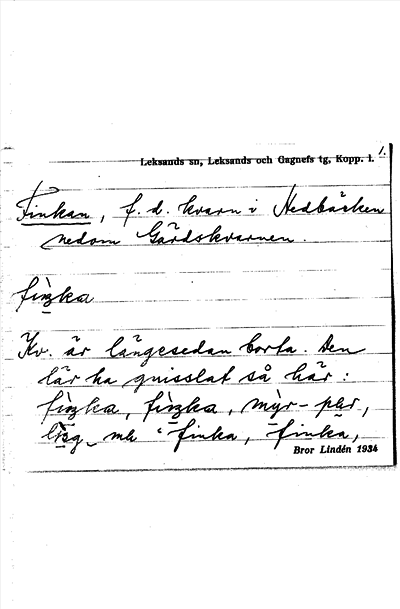 1.
Leksands sn, Leksands och Gagnefs tg, Kopp. l.
Finkan, f.d. kvarn i Nedbäcken
nedom Gårdskvarnen.
fìŋka
Kv. är längesedan borta. Den
lär ha gnisslat så här:
fìŋka, fìŋka,
"finka, finka,
Bror Lindén 1934